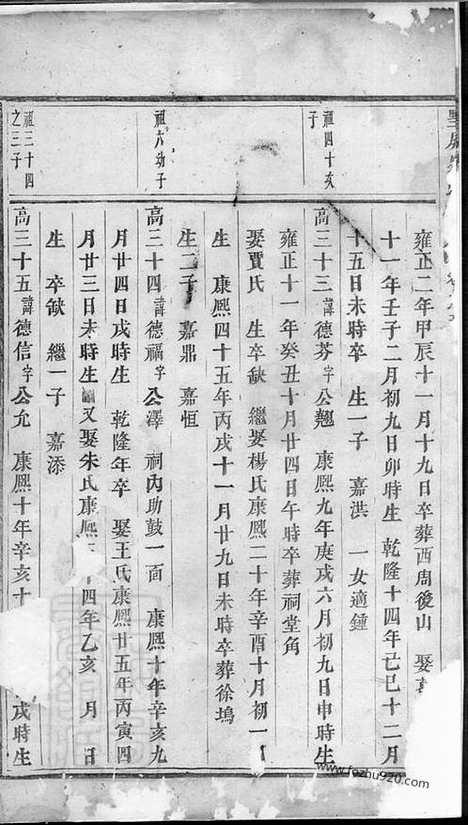 雍正二年甲辰十一月十九日卒葬西周後山　娶
十一年壬子二月初九日卯時生　乾隆十四年己巳十二月
十五日未時卒　生一子　嘉洪　一女適鍾
祖四十亥子
高三十三諱德芬字公翹　康熙九年庚戌六月初九日申時生
雍正十一年癸丑十月廿四日午時卒葬祠堂角
娶賈氏　生卒缺　繼娶楊氏康熙二十年辛酉十月初一
生　康熙四十五年丙戌十一月廿九日未時卒葬徐塢
生二子　嘉鼎　嘉恒
祖六幼子
高三十四諱德福字公澤　祠內助鼓一面　康熙十年辛亥九
月廿四日戌時生　乾隆年卒　娶王氏康熙廿五年丙寅四
月廿三日未時生　又娶朱氏康熙三十四年乙亥　月　日
生　卒缺　繼一子　嘉添
祖三十四之三子
高三十五諱德信字公允　康熙十年辛亥十　戌時生
www.fozhu920.com